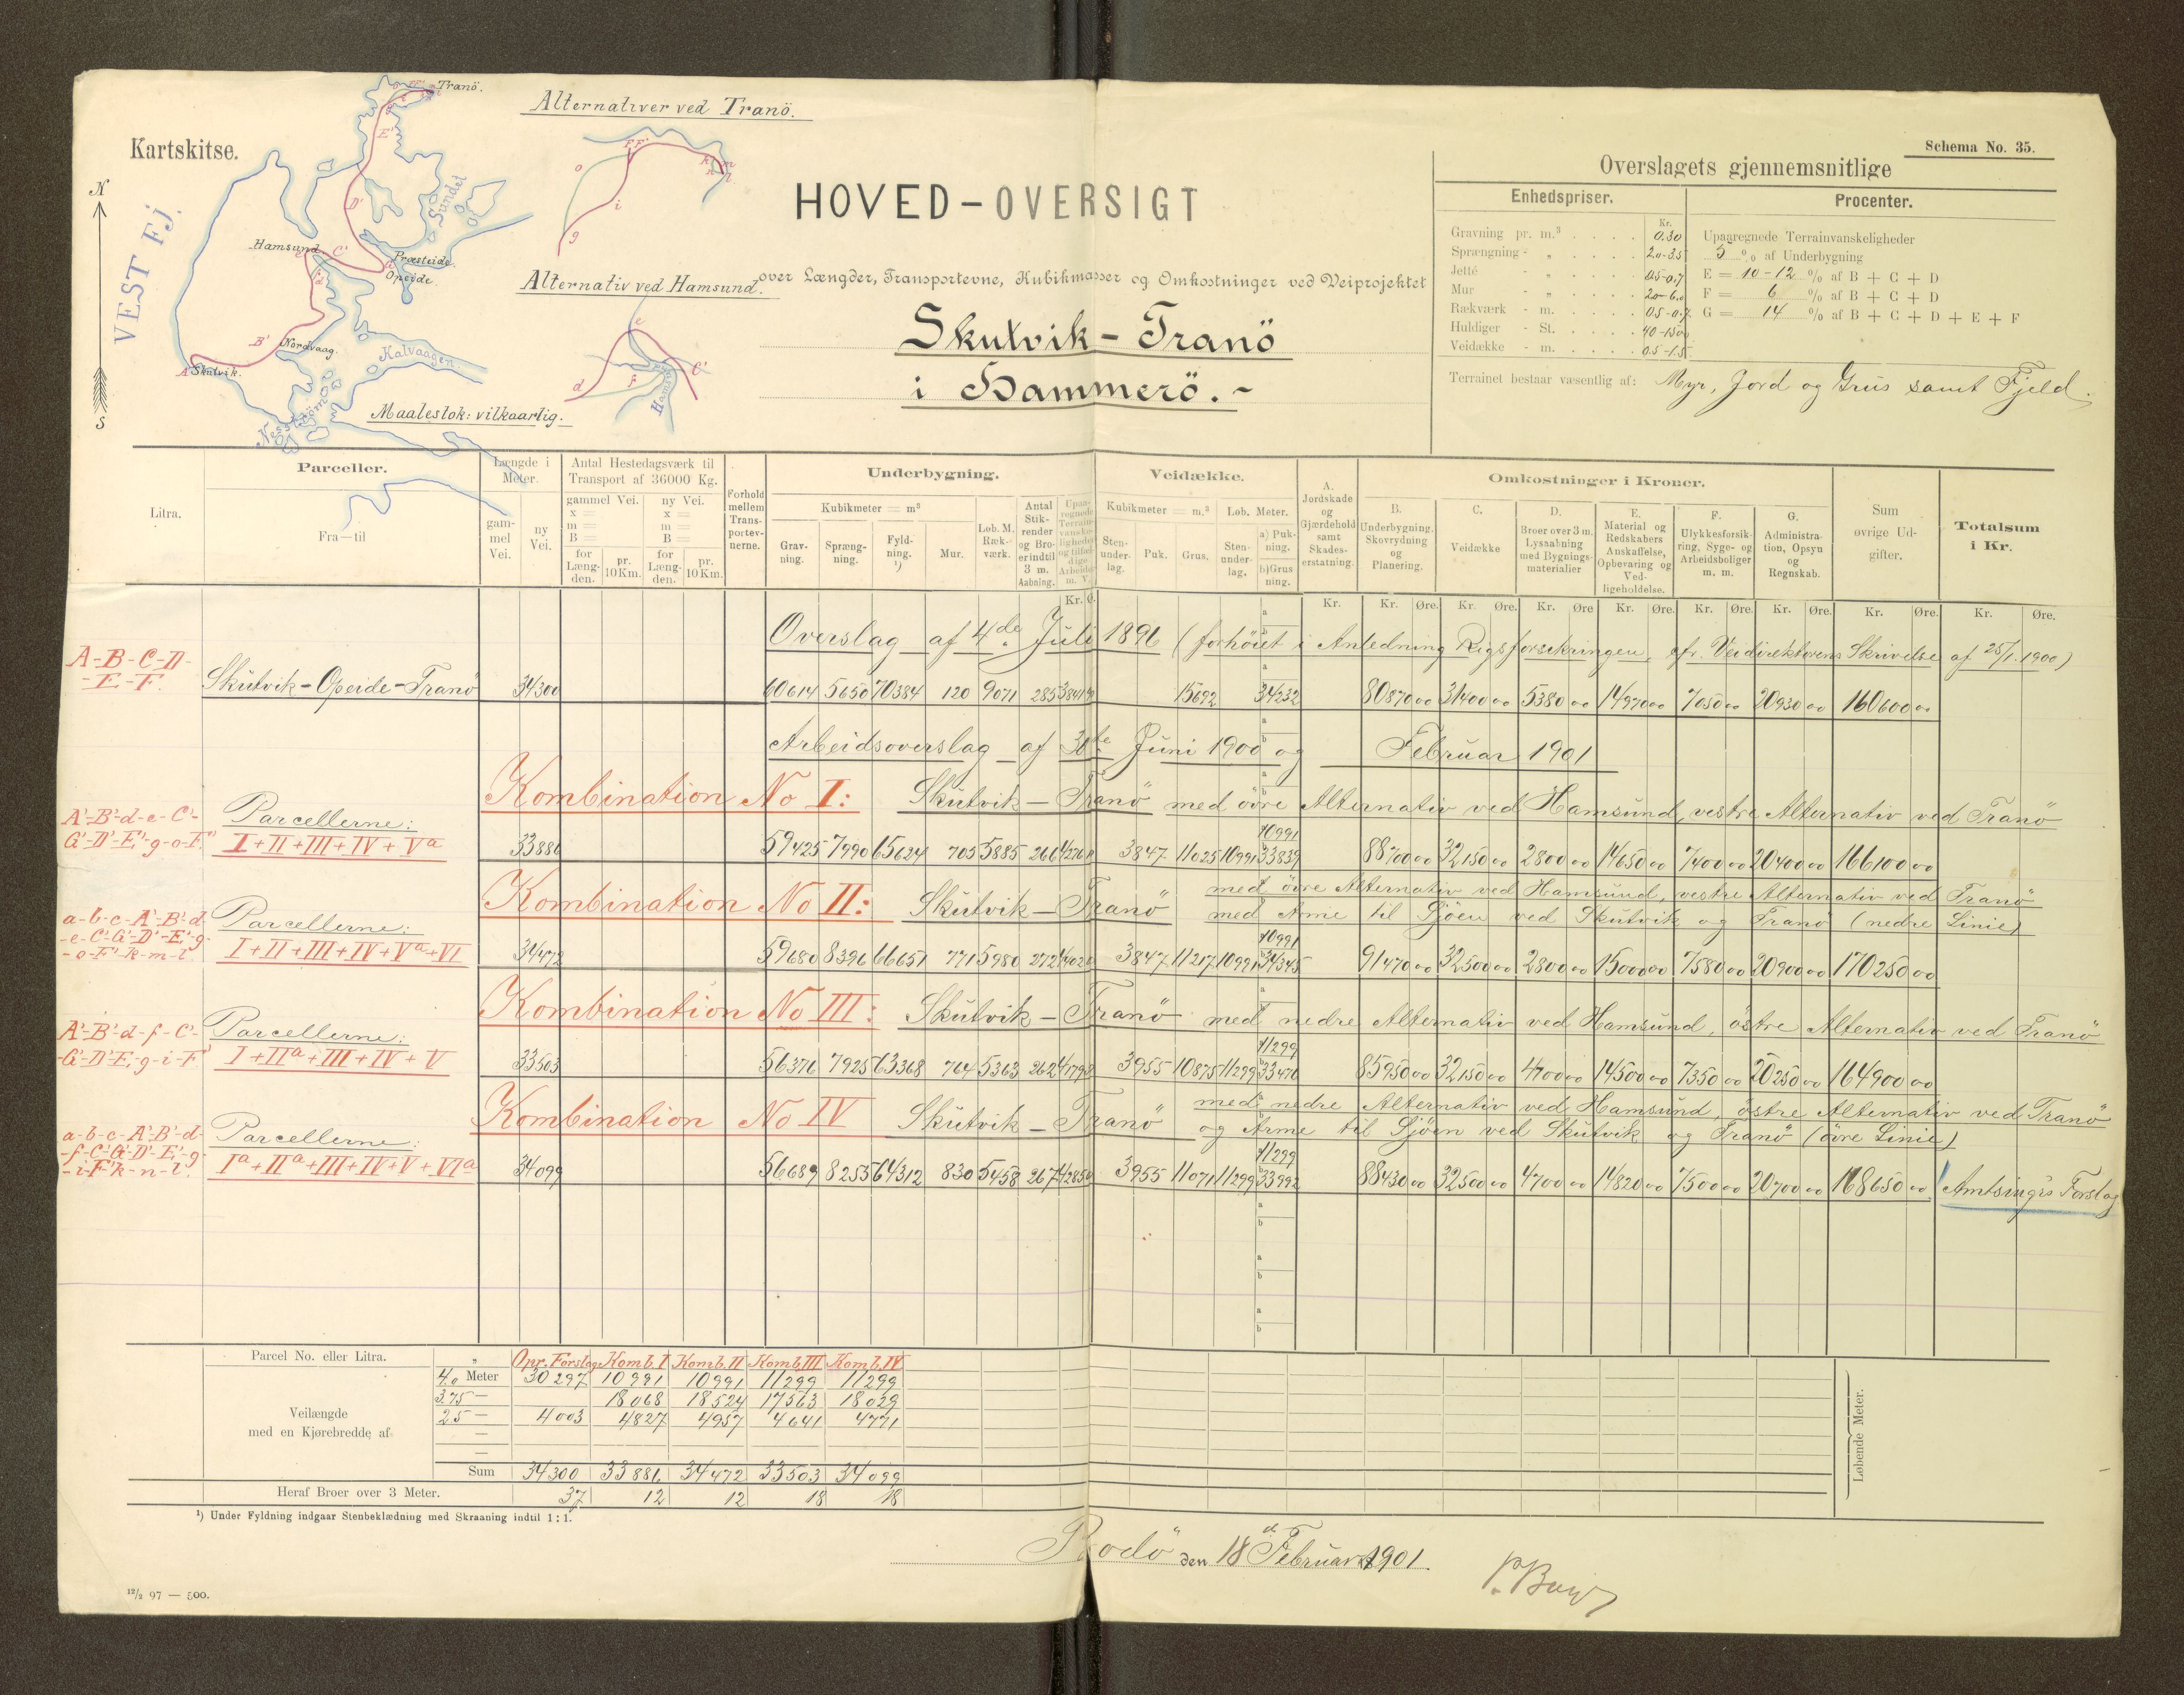 Kartskitse.
N
S
VEST Fj.
Tranö.
E'
D'
Sundet
Hamsund
C'
Presteide.
Opeide
d
B'
Nordvaag.
Kalvaagen.
A
Skutvik.
Nesström
Maalestok: vilkaarlig.
Alternativer ved Tranö.
o
F'
k
m
n
l
i
g
Alternativ ved Hamsund.
e
d
f
C'
HOVED-OVERSIGT
over Længder, Transportevne, Kubikmasser og Omkostninger ved Veiprojektet
Skutvik - Tranö
i Hammerö. -
Schema No. 35.
Overslagets gjennemsnitlige
Enhedspriser.
Kr.
Gravning pr. m.³ 0.30
Sprængning - „ 2.0-3.5
Jetté - „ 0.5-0.7
Mur - „ 2.0-6.0
Rækværk - m. 0.5-0.7
Huldiger - St. 40-1500
Veidække - m. 0.5-1.5
Procenter.
Upaaregnede Terrainvanskeligheder
5 % af Underbygning
E = 10-12 % af B + C + D
F = 6 % af B + C + D
G = 14 % af B + C + D + E + F
Terrainet bestaar væsentlig af: Myr, Jord og Grus samt Fjeld.
Litra.
Parceller.
Fra—til
Længde i Meter.
gammel Vei.
ny Vei.
Antal Hestedagsværk til Transport af 36000 Kg.
gammel Vei.
x =
m =
B =
for Længden.
pr. 10 Km.
ny Vei.
x =
m =
B =
for Længden.
pr. 10 Km.
Forhold mellem Transportevnerne.
Underbygning.
Kubikmeter = m³
Gravning.
Sprængning.
Fyldning. ¹)
Mur.
Løb. M. Rækværk.
Antal Stikrender og Broer indtil 3 m. Aabning.
Upaaregnede Terrainvanskeligheder og tilfældige Arbeider m. V.
Veidække.
Kubikmeter = m.³
Stenunderlag.
Puk.
Grus.
Løb. Meter.
Stenunderlag.
a) Pukning.
b) Grusning.
A. Jordskade og Gjærdehold samt Skadeserstatning.
Omkostninger i Kroner.
B. Underbygning. Skovrydning og Planering.
C. Veidække
D. Broer over 3 m. Lyssabning med Bygningsmaterialier
E. Material og Redskabers Anskaffelse, Opbevaring og Vedligeholdelse.
F. Ulykkesforsikring, Syge- og Arbeidsboliger m. m.
G. Administration, Opsyn og Regnskab.
Sum øvrige Udgifter.
Totalsum i Kr.
Kr. Ø. Kr. Kr. Øre. Kr. Øre. Kr. Øre Kr. Øre. Kr. Øre. Kr. Øre. Kr. Øre. Kr. Øre.
Overslag af 4de Juli 1896 (forhöiet i Anledning Rigsforsikringen, cfr. Veidirektörens Skrivelse af 25/1.1900)
A-B-C-D-
-E-F.
Skutvik-Opeide-Tranö 34300 60614 5650 70384 120 9071 285 15692 34232 80870 00 31400 00 5380 00 14970 00 7050 00 20930 00 160600 00
Arbeidsoverslag af 30te Juni 1900 og Februar 1901
Kombination No I: Skutvik-Tranö med övre Alternativ ved Hamsund, vestre Alternativ ved Tranö
A'-B'-d-e-C'-
G'-D'-E'-g-o-F'
Parcellerne:
I+II+III+IV+Va 33886 59425 7990 65624 705 5885 266 3847 11025 10991 10991 33839 88700 00 32150 00 2800 00 14650 00 7400 00 20400 00 166100 00
Kombination No II: Skutvik-Tranö med övre Alternativ ved Hamsund, vestre Alternativ ved Tranö
med Arme til Sjöen ved Skutvik og Tranö (nedre Linie)
a-b-c-A'-B'-d-
-e-C'-G'-D'-E'-g-
-o-F'-k-m-l.
Parcellerne:
I+II+III+IV+Va+VI 34472 59680 8396 66651 771 5980 272 3847 11217 10991 10991 34345 91470 00 32500 00 2800 00 15000 00 7580 00 20900 00 170250 00
Kombination No III: Skutvik-Tranö med nedre Alternativ ved Hamsund, östre Alternativ ved Tranö
A'-B'-d-f-C'-
-G'-D'-E'-g-i-F'
Parcellerne:
I+IIa+III+IV+V 33503 56376 7925 63368 764 5363 262 3955 10875 11299 11299 33470 85950 00 32150 00 4700 00 14500 00 7350 00 20250 00 164900 00
Kombination No IV Skutvik-Tranö med nedre Alternativ ved Hamsund, östre Alternativ ved Tranö
og Arme til Sjöen ved Skutvik og Tranö (övre Linie)
a-b-c-A'-B'-d-
-f-C'-G'-D'-E'-g-
-i-F'-k-n-l.
Parcellerne:
Ia+IIa+III+IV+V+VIa 34099 56689 8255 64312 830 5458 267 3955 11071 11299 11299 33992 88430 00 32500 00 4700 00 14820 00 7500 00 20700 00 168650 00 Amtsing's Forslag
Parcel No. eller Litra. „ Opr. Forslag Komb. I Komb. II Komb. III Komb. IV
Veilængde med en Kjørebredde af
4.0 Meter 30297 10991 10991 11299 11299
3.75 — 18068 18524 17563 18029
2.5 — 4003 4827 4957 4641 4771
Sum 34300 33886 34472 33503 34099
Heraf Broer over 3 Meter. 37 12 12 18 18
Løbende Meter.
¹) Under Fyldning indgaar Stenbeklædning med Skraaning indtil 1 : 1.
Bodö den 18de Februar 1901.
12/2 97 — 500.